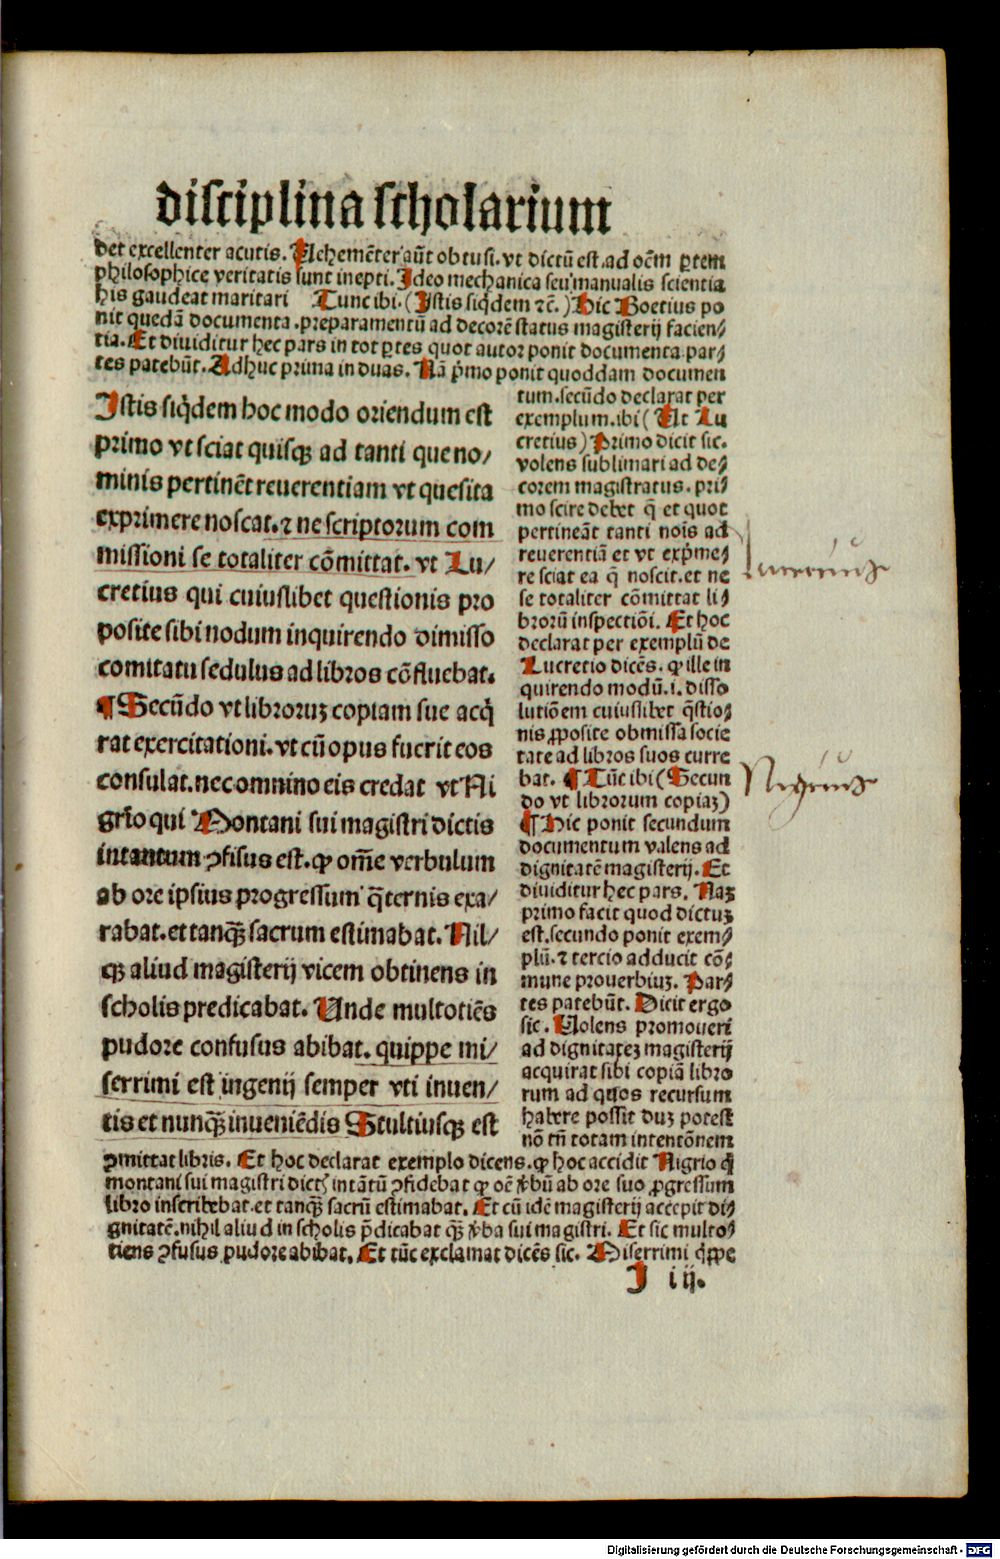 disciplina scholarium
det excellenter acutis. Uehemēter aūt obtusi. vt dictū est. ad oēm ꝑtem
philosophice veritatis sunt inepti. Ideo mechanica seu manualis scientia
his gaudeat maritari Tunc ibi. (Istis siq̄dem ⁊c̄.) Hic Boetius po
nit quedā documenta. preparamentū ad decorē status magisterij facien/
tia. Et diuiditur hec pars in tot ꝑtes quot autor ponit documenta. par/
tes patebūt. Adhuc prima in duas. Nā p̄mo ponit quoddam documen
tum. secūdo declarat per
exemplum. ibi (Ut Lu
cretius) Primo dicit sic.
volens sublimari ad de/
corem magistratus. pri/
mo scire debet q̄ et quot
pertineāt tanti noīs ad
reuerentiā et vt exp̄me/
re sciat ea q̄ noscit. et ne
se totaliter cōmittat li/
brorū inspectiōi. Et hoc
declarat per exemplū de
Lucretio dicēs. ꝙ ille in
quirendo modū .i. disso
lutiōem cuiuslibet q̄stio/
nis ꝓposite obmissa socie
tate ad libros suos curre
bat. ¶ Tūc ibi (Secun
do vt librorum copiaꝫ)
¶ Hic ponit secundum
documentum valens ad
dignitatē magisterij. Et
diuiditur hec pars. Naꝫ
primo facit quod dictuꝫ
est. secundo ponit exem/
plū. ⁊ tercio adducit cō/
mune prouerbiuꝫ. Par/
tes patebūt. Dicit ergo
sic. Uolens promoueri
ad dignitateꝫ magisterij
acquirat sibi copiā libro
rum ad quos recursum
habere possit duꝫ potest
nō tn̄ totam intentōnem
Istis siq̄dem hoc modo oriendum est
primo vt sciat quisqꝫ ad tanti que no/
minis pertinēt reuerentiam vt quesita
exprimere noscat. ⁊ ne scriptorum com
missioni se totaliter cōmittat. vt Lu/
cretius qui cuiuslibet questionis pro
posite sibi nodum inquirendo dimisso
comitatu sedulus ad libros cōfluebat.
¶ Secūdo vt libroruꝫ copiam sue acq̄
rat exercitationi. vt cū opus fuerit eos
consulat. nec omnino eis credat vt Ni
grīo qui Montani sui magistri dictis
intantum ꝯfisus est. ꝙ om̄e verbulum
ab ore ipsius progressum q̄ternis exa/
rabat. et tanqꝫ sacrum estimabat. Nil/
qꝫ aliud magisterij vicem obtinens in
scholis predicabat. Unde multotiēs
pudore confusus abibat. quippe mi/
serrimi est ingenij semper vti inuen/
tis et nunqꝫ inueniēdis Stultiusqꝫ est
ꝯmittat libris. Et hoc declarat exemplo dicens. ꝙ hoc accidit Nigrio q̄
montani sui magistri dictꝭ intātū ꝯfidebat ꝙ oē v̄bū ab ore suo ꝓgressum
libro inscribebat. et tanqꝫ sacrū estimabat. Et cū idē magisterij accepit di/
gnitatē. nihil aliud in scholis p̄dicabat qꝫ v̄ba sui magistri. Et sic multo/
tiens ꝯfusus pudore abibat. Et tūc exclamat dicēs sic. Miserrimi q̄ppe
I iij.
Lucrecius
Nigrius
Digitalisierung gefördert durch die Deutsche Forschungsgemeinschaft - DFG